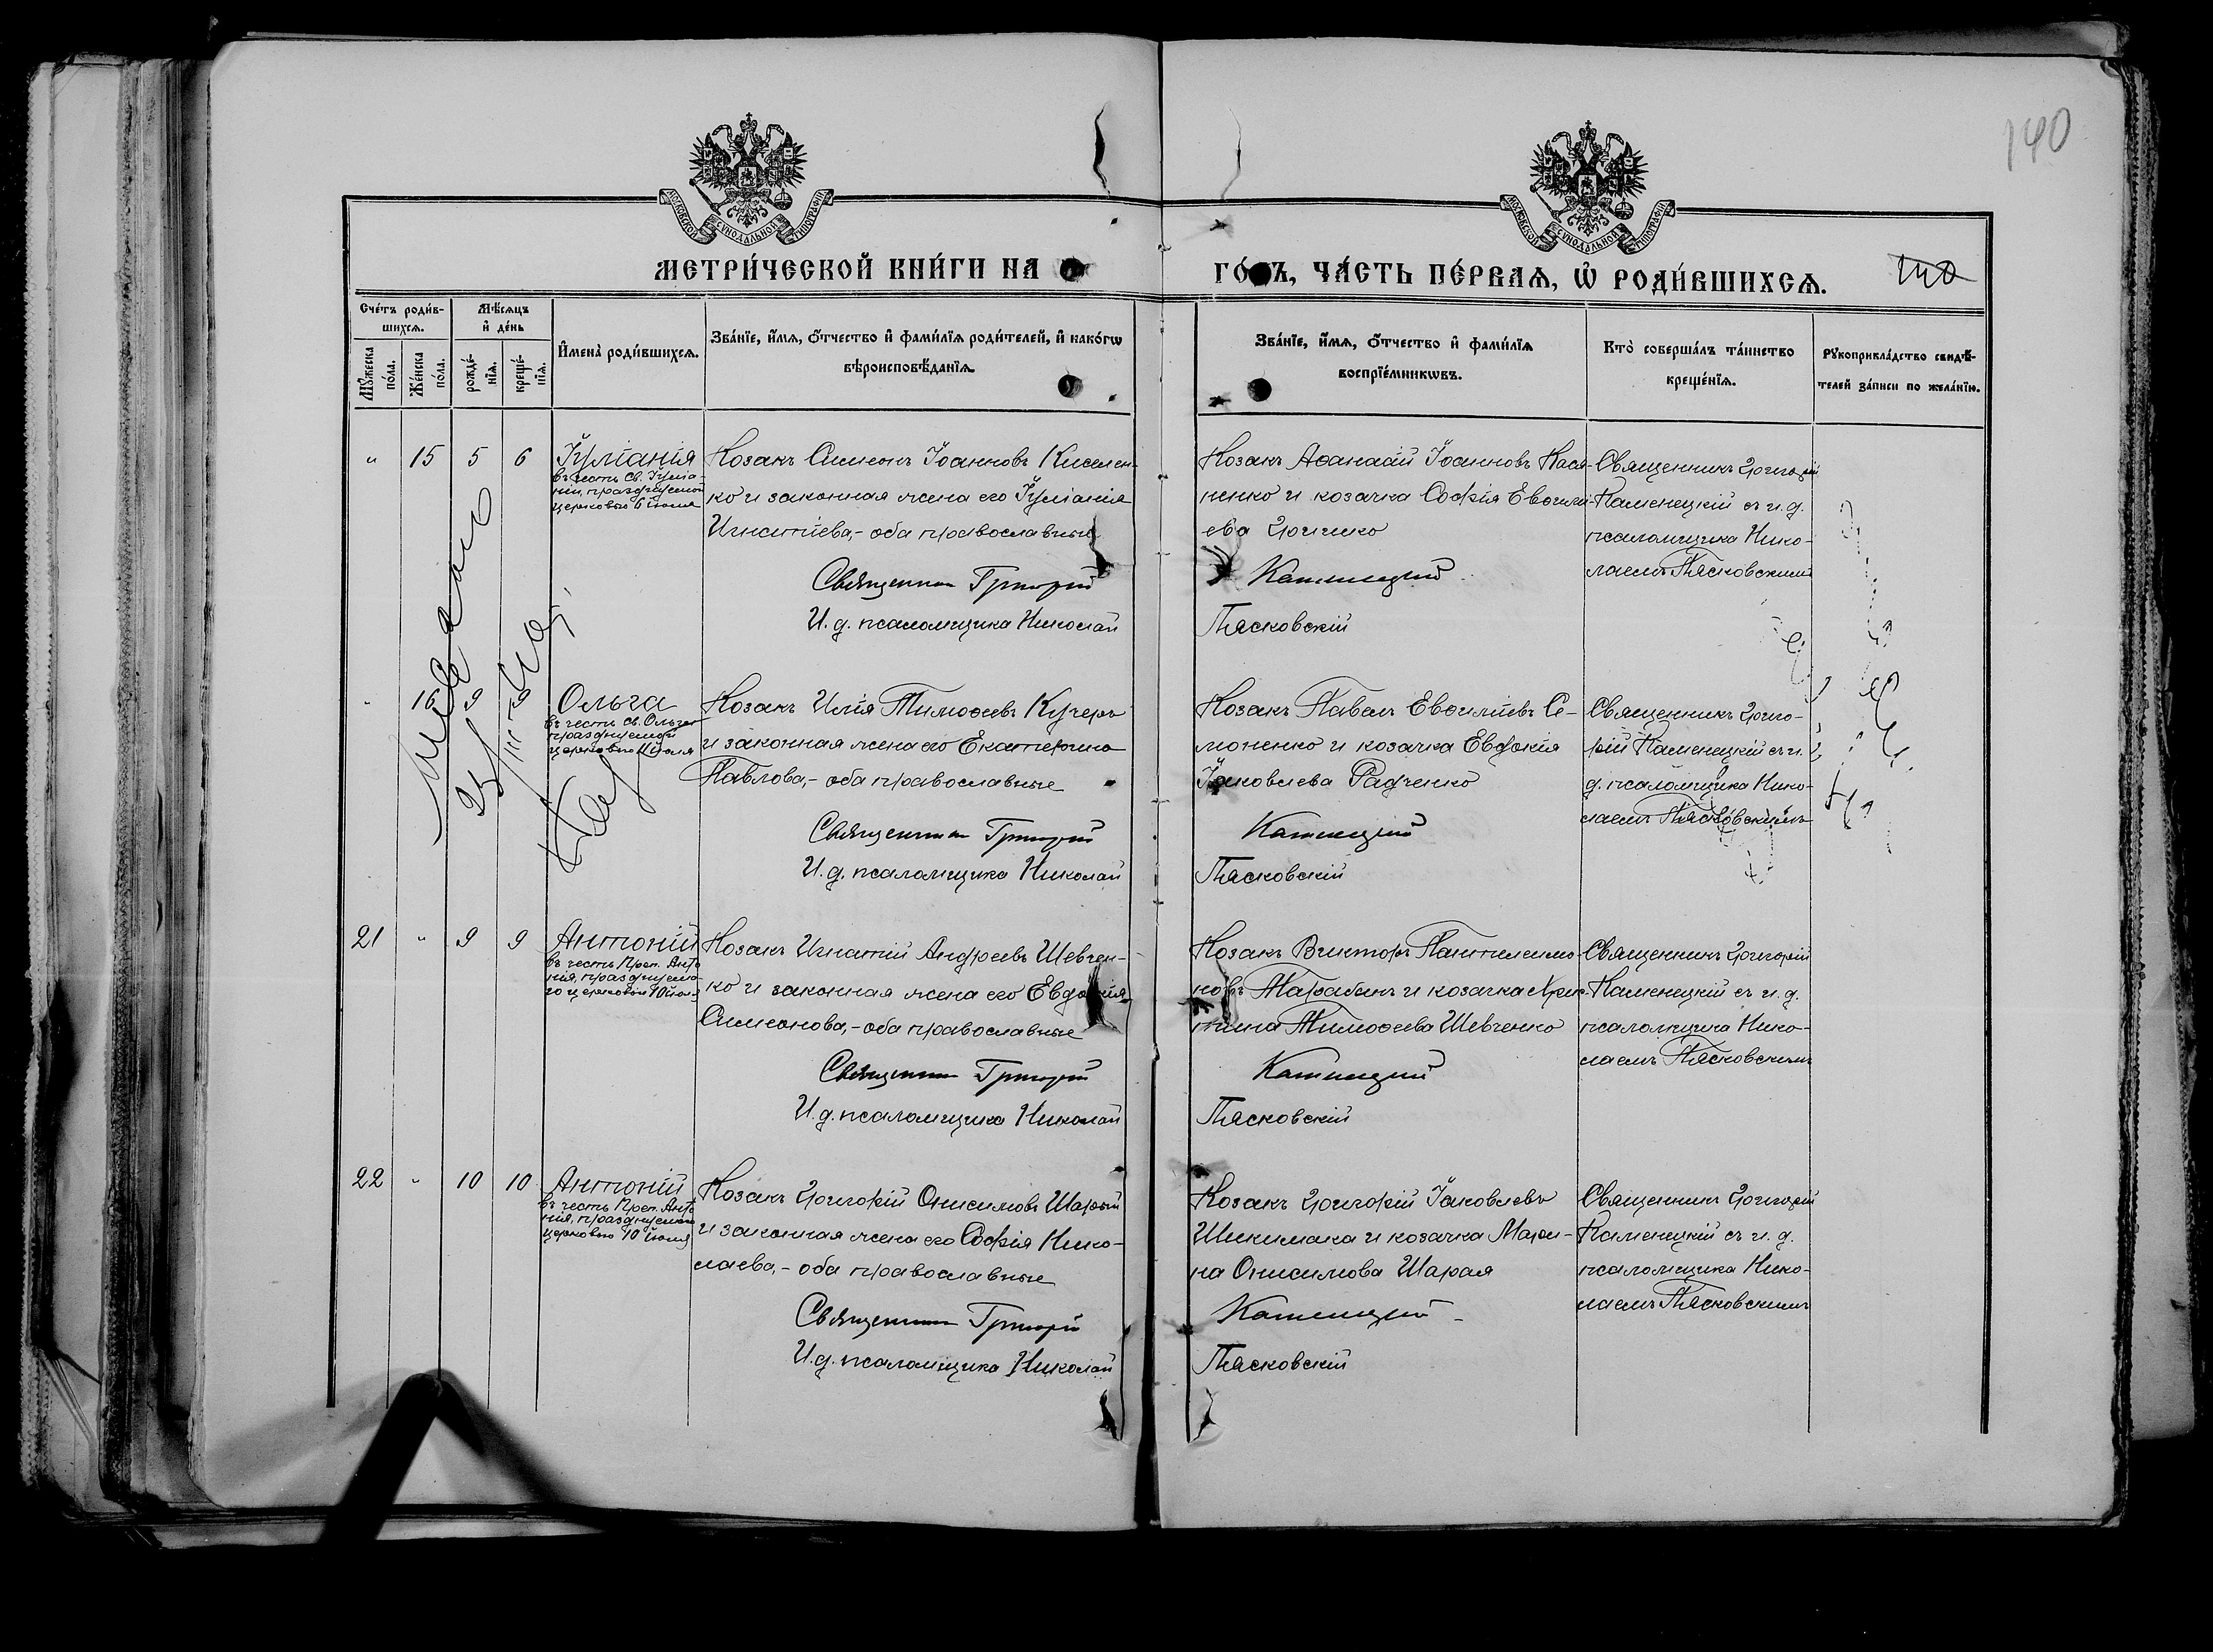 140
МОСКОВСКОЙ СѴНОДАЛЬНОЙ ТИПОГРАФІИ
МОСКОВСКОЙ СѴНОДАЛЬНОЙ ТИПОГРАФІИ
МЕТРИ́ЧЕСКОЙ КНИ́ГИ НА
ГО́ Ъ, ЧА́СТЬ ПЕ́РВАѦ, Ѡ҆ РОДИ́ВШИХСѦ.
140
Сче́тъ роди́в-
шихсѧ.
Мѣ́сѧцъ
и҆ де́нь
Мꙋ́жеска по́ла.
Же́нска по́ла.
рожде́-
нїѧ.
креще́-
нїѧ.
И҆мена̀ роди́вшихсѧ.
Зва́нїе, и҆́мѧ, ѻ҆́тчество и҆ фами́лїѧ роди́телей, и҆ како́гѡ
вѣроисповѣ́данїѧ.
Зва́нїе, и҆́мѧ, ѻ҆́тчество и҆ фами́лїѧ
воспрїе́мникѡвъ.
Кто̀ соверша́лъ та́инство
креще́нїѧ.
Рꙋкоприкла́дство свидѣ́-
телей за́писи по жела́нїю.
" 15 5 6 Іуліанія
въ честь св. Іуліа-
ніи, празднуемой
церковью 6 июля
Козакъ Симеонъ Іоанновъ Киселен-
ко и законная жена его Іуліанія
Игнатіева,- оба православные
Священник Григорій
И. д. псаломщика Николай
Козакъ Аѳанасій Іоанновъ
ненко и козачка Софія
ева Гриценко
Каменецкий
Пясковскій
Священникъ Григорій
Каменецкій съ и. д.
псаломщика Нико-
лаемъ Пясковскимъ
" 16 9 9 Ольга
въ честь св. Ольги
празднуемой
церковью 11 июля
Козакъ Илія Тимоѳеевъ Кучеръ
и законная жена его Екатерина
Павлова,- оба православные
Священник Григорій
И. д. псаломщика Николай
Козакъ Павелъ Се-
моненко и козачка Евдокія
Іаковлева Радченко
Каменецкий
Пясковскій
Священникъ Григо-
рій Каменецкій съ и.
д. псаломщика Нико-
лаемъ Пясковскимъ
21 " 9 9 Антоній
въ честь Преп. Анто
нія, празднуемо-
го церковью 10 июля
Козакъ Игнатій Андреевъ Шевчен-
ко и законная жена его Евдокія
Симеонова,- оба православные
Священник Григорій
И. д. псаломщика Николай
Козакъ Викторъ Пантелеимо-
новъ Тарабанъ и козачка Хрис-
тина Тимоѳеева Шевченко
Каменецкий
Пясковскій
Священникъ Григорій
Каменецкій съ и. д.
псаломщика Нико-
лаемъ Пясковскимъ
22 " 10 10 Антоній
въ честь Преп. Анто
нія, празднуемаго
церковью 10 июля
Козакъ Григорій Онисимовъ Шарый
и законная жена его Софія Нико-
лаева,- оба православные
Священник Григорій
И. д. псаломщика Николай
Козакъ Григорій Іаковлевъ
Шикимака и козачка Мари-
на Онисимова Шарая
Каменецкий
Пясковскій
Священникъ Григорій
Каменецкій съ и. д.
псаломщика Нико-
лаемъ Пясковскимъ